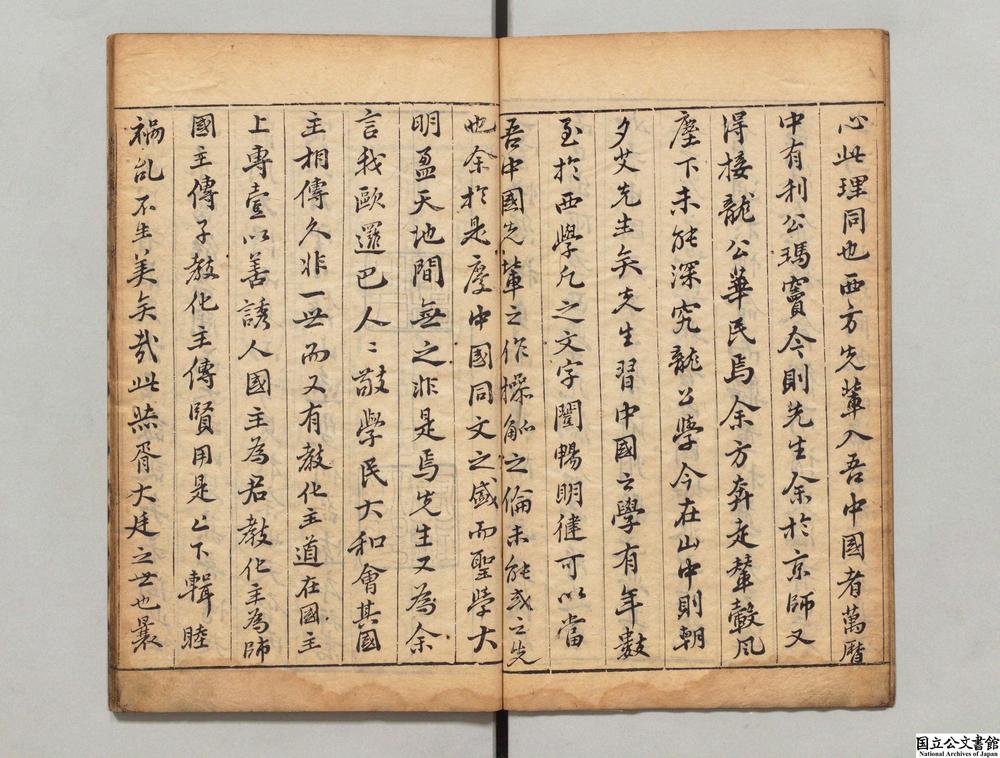 心此理同也西方先輩入吾中國者萬曆
中有利公瑪竇今則先生余於京師又
得接龍公華民焉余方奔走輦轂風
塵下未能深究龍公學今在山中則朝
夕艾先生矣先生習中國之學有年數
至於西學凡之文字闓暢明健可以當
吾中國先輩之作操觚之倫未能或之先
也余於是慶中國同文之盛而聖學大
明盈天地間無之非是焉先生又為余
言我歐邏巴人〻敬學民大和會其國
主相傳久非一世而又有教化主道在國主
上專壹以善誘人國主為君教化主為師
國主傳子教化主傳賢用是上下輯睦
禍亂不生美矣哉此赫胥大廷之世也曩
国立公文書館
National Archives of Japan